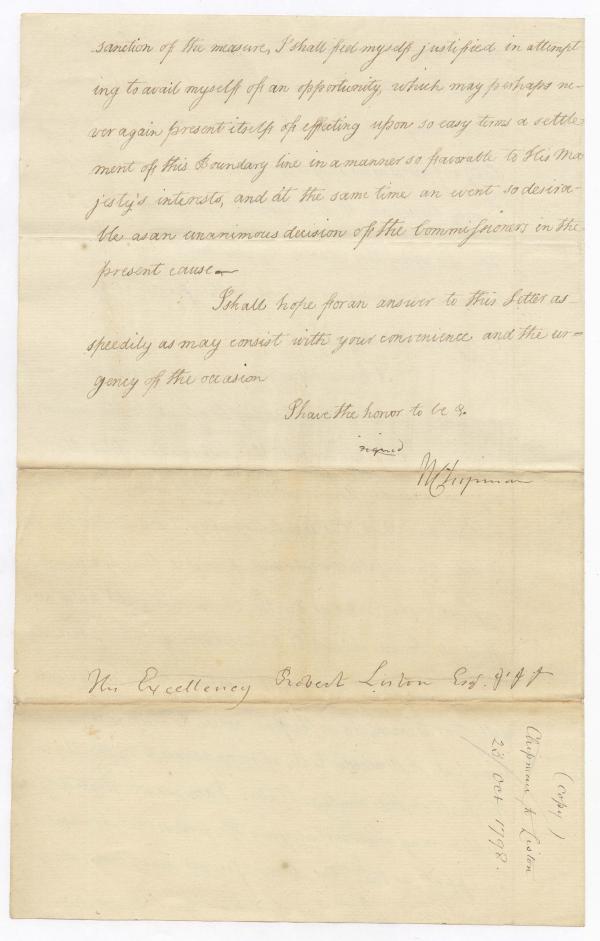 sanction of the measure, I shall feel myself justified in attempt
ing to avail myself of an opportunity, which may perhaps ne-
ver again present itself of effecting upon so easy terms a settle
ment of this Boundary line in a manner so favorable to His Ma
jesty's interests, and at the same time an event so desira-
ble as an unanimous decision of the Commissioners in the
present cause—
I shall hope for an answer to this Letter as
speedily as may consist with your convenience and the ur=
gency of the occasion
I have the honor to be &.
signed
W Chipman
His Excellency Robert Liston Esq.
(Copy)
Chipman to Liston
23/ Oct 1798.